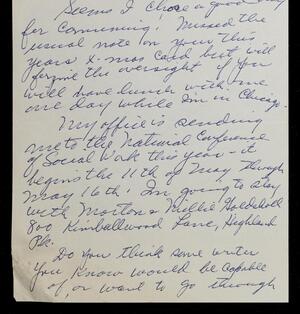 Seems I chose a good day
for Communing! Missed the
usual note on your this
years X-mas Card but will
forgive the oversight if you
will have lunch with me
one day while I'm in Chicago.
My office is sending
me to the National Conference
of Social Work this year - it
begins the 11th of May through
May 16th! I'm going to stay
with Morton & Millie Goldsholl
800 Kimballwood Lane, Highland
Pk.
Do you think some writer
you know would be capable
of, or want to go through